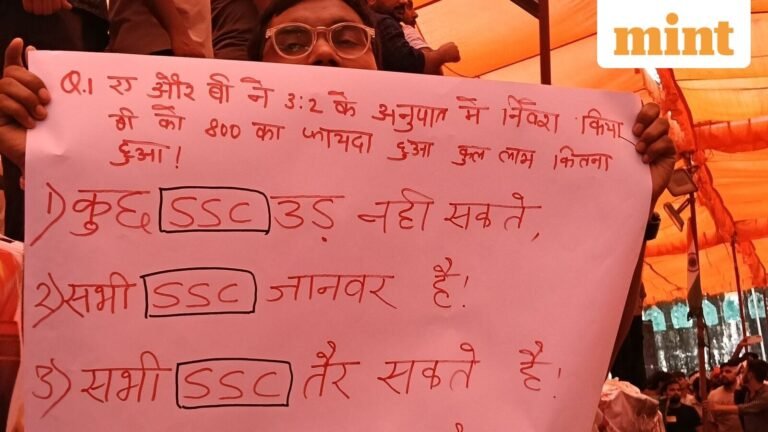 mint
Q.1 ए और बी ने 3:2 के अनुपात में निवेश किया
बी को 800 का फायदा हुआ कुल लाभ कितना
हुआ!
1) कुछ SSC उड़ नही सकते,
2) सभी SSC जानवर है!
3) सभी SSC तैर सकते है!